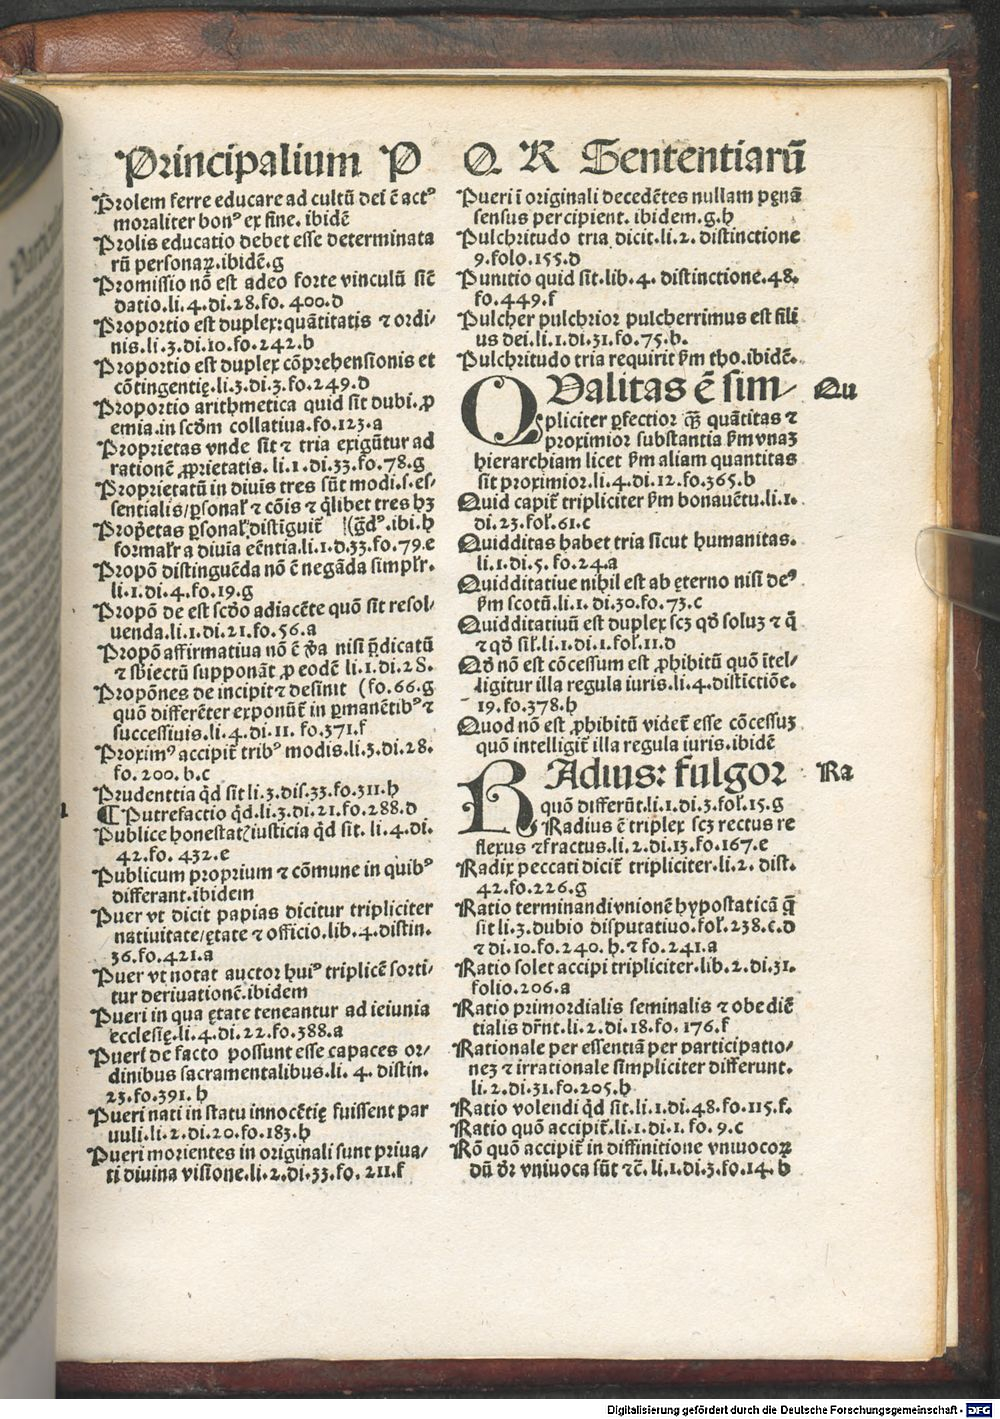 Principalium P Q R Sententiarũ
Prolem ferre educare ad cultũ dei ẽ actꝰ
moraliter bonꝰ ex fine. ibidẽ
Prolis educatio debet esse determinata
rũ personaꝝ.ibidẽ.g
Promissio nõ est adeo forte vinculũ siẽ
datio.li.4.di.28.fo. 400.d
Proportio est duplex:quãtitatis ⁊ ordi⸗
nis.li.3.di.10.fo.242.b
Proportio est duplex cõprehensionis et
cõtingentię.li.3.di.3.fo.249.d
Proportio arithmetica quid sit dubi.ꝓ
emia.in scđm collatiua.fo.123.a
Proprietas vnde sit ⁊ tria exigũtur ad
rationẽ ꝓprietatis. li.1.di.33.fo.78.g
Proprietatũ in diuis tres sũt modi.s.es⸗
sentialis/ꝑsonał ⁊ cõis ⁊ q̃libet tres hꝫ
Prop̃etas ꝑsonał distiguit̃ (g̃dꝰ.ibi.h
formałr a diuia eẽntia.li.1.d.33.fo.79.e
Propõ distinguẽda nõ ẽ negãda simpłr.
li.1.di.4.fo.19.g
Propõ de est scđo adiacẽte quõ sit resol⸗
uenda.li.1.di.21.fo.56.a
Propõ affirmatiua nõ ẽ ṽa nisi p̃dicatũ
⁊ sbiectũ supponãt ꝓ eodẽ li.1.di.28.
Propõnes de incipit ⁊ desinit (fo.66.g
quõ differẽter exponũt̃ in ꝑmanẽtibꝰ ⁊
successiuis.li.4.di.11. fo.371.f
Proximꝰ accipit̃ tribꝰ modis.li.3.di.28.
fo. 200. b.c
Prudenttia q̃d sit li.3.dis.33.fo.311.h
¶ Putrefactio q̃d.li.3.di.21.fo.288.d
Publice honestatꝭ iusticia q̃d sit. li.4.di.
42.fo. 432.e
Publicum proprium ⁊ cõmune in quibꝰ
differant.ibidem
Puer vt dicit papias dicitur tripliciter
natiuitate/ętate ⁊ officio.lib.4.distin.
36.fo.421.a
Puer vt notat auctor huiꝰ triplicẽ sorti⸗
tur deriuationẽ.ibidem
Pueri in qua ętate teneantur ad ieiunia
ecclesię.li.4.di.22.fo.388.a
Pueri de facto possunt esse capaces or⸗
dinibus sacramentalibus.li. 4. distin.
23.fo.391. h
Pueri nati in statu innocẽtię fuissent par
uuli.li.2.di.20.fo.183.h
Pueri morientes in originali sunt priua⸗
ti diuina visione.li.2.di.33.fo. 211.f
Pueri ĩ originali decedẽtes nullam pęnã
sensus percipient. ibidem.g.h
Pulchritudo tria dicit.li.2. distinctione
9.folo.155.d
Punitio quid sit.lib.4. distinctione.48.
fo.449.f
Pulcher pulchrior pulcherrimus est fili
us dei.li.1.di.31.fo.75.b.
Pulchritudo tria requirit ẜm tho.ibidẽ.
QValitas ẽ sim⸗ Qu
pliciter ꝑfectior q̃ꝫ quãtitas ⁊
proximior substantia ẜm vnaꝫ
hierarchiam licet ẜm aliam quantitas
sit proximior.li.4.di.12.fo.365.b
Quid capit̃ tripliciter ẜm bonauẽtu.li.1.
di.23.foł.61.c
Quidditas habet tria sicut humanitas.
li.1.di.5.fo.24.a
Quidditatiue nihil est ab ęterno nisi deꝰ
ẜm scotũ.li.1. di.30.fo.73.c
Quidditatiuũ est duplex scꝫ qđ soluꝫ ⁊ q̃
⁊ qđ sił.li.1.di.1.foł.11.d
Qđ nõ est cõcessum est ꝓhibitũ quõ ĩtel⸗
ligitur illa regula iuris.li.4.distictiõe.
19.fo.378.h
Quod nõ est ꝓhibitũ videt̃ esse cõcessuꝫ
quõ intelligit̃ illa regula iuris.ibidẽ
RAdius: fulgor Ra
quõ differũt.li.1.di.3.foł.15.g
Radius ẽ triplex scꝫ rectus re
flexus ⁊fractus.li.2.di.13.fo.167.e
Radix peccati dicit̃ tripliciter.li.2. dist.
42.fo.226.g
Ratio terminandi vnionẽ hypostaticã q̃ꝫ
sit li.3.dubio disputatiuo.foł.238.c.d
⁊ di.10.fo.240. h.⁊ fo.241.a
Ratio solet accipi tripliciter.lib.2.di.31.
folio.206.a
Ratio primordialis seminalis ⁊ obediẽ
tialis dr̃nt.li.2.di.18.fo. 176.f
Rationale per essentiã per participatio⸗
neꝫ ⁊ irrationale simpliciter differunt.
li.2.di.31.fo.205.h
Ratio volendi q̃d sit.li.1.di.48.fo.115.f.
Ratio quõ accipit̃.li.1.di.1. fo. 9.c
Rõ quõ accipit̃ in diffinitione vniuocoꝝ
dũ dr̃ vniuoca sũt ⁊c̃. li.1.di.3.fo.14. b
Digitalisierung gefördert durch die Deutsche Forschungsgemeinschaft - DFG